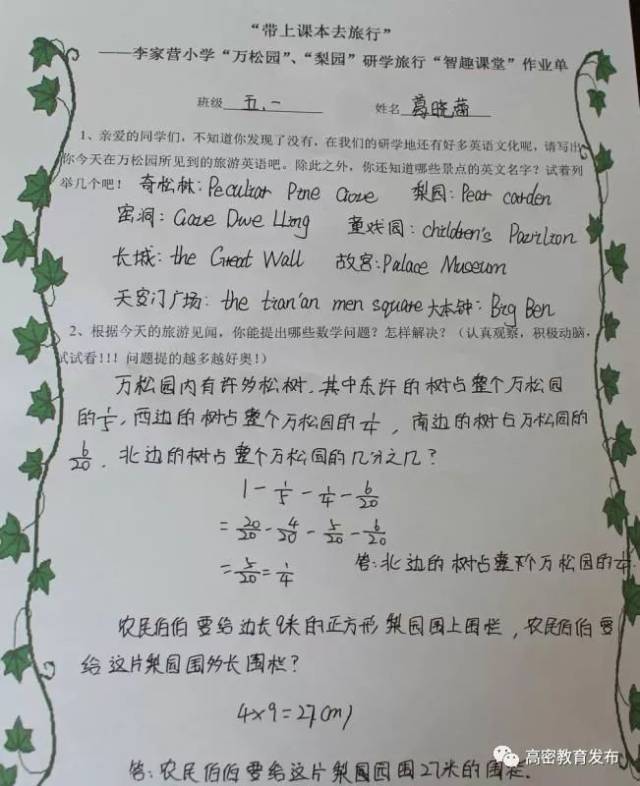 “带上课本去旅行”
——李家营小学“万松园”、“梨园”研学旅行“智趣课堂”作业单
班级 五.一 姓名 葛晓蕾
1、亲爱的同学们，不知道你发现了没有，在我们的研学地还有好多英语文化呢，请写出
你今天在万松园所见到的旅游英语吧。除此之外，你还知道哪些景点的英文名字？试着列
举几个吧！ 奇松林：Peculiar Pine Grove 梨园：Pear Garden
窑洞：Cave Dwelling 童戏园：children's Pavilion
长城：the Great Wall 故宫：Palace Museum
天安门广场：the tian'an men square 大本钟：Big Ben
2、根据今天的旅游见闻，你能提出哪些数学问题？怎样解决？（认真观察，积极动脑，
试试看!!! 问题提的越多越好奥!）
万松园内有许多松树．其中东许的树占整个万松园
的1/5，西边的树占整个万松园的1/4，南边的树占万松园的
6/20．北边的树占整个万松园的几分之几？
1-1/5-1/4-6/20
=20/20-4/20-5/20-6/20
=5/20=1/4 答：北边的树占整个万松园的1/4.
农民伯伯要给边长9米的正方形梨园围上围栏，农民伯伯要
给这片梨园围多长围栏？
4×9=27(m)
答：农民伯伯要给这片梨园围27米的围栏．
高密教育发布